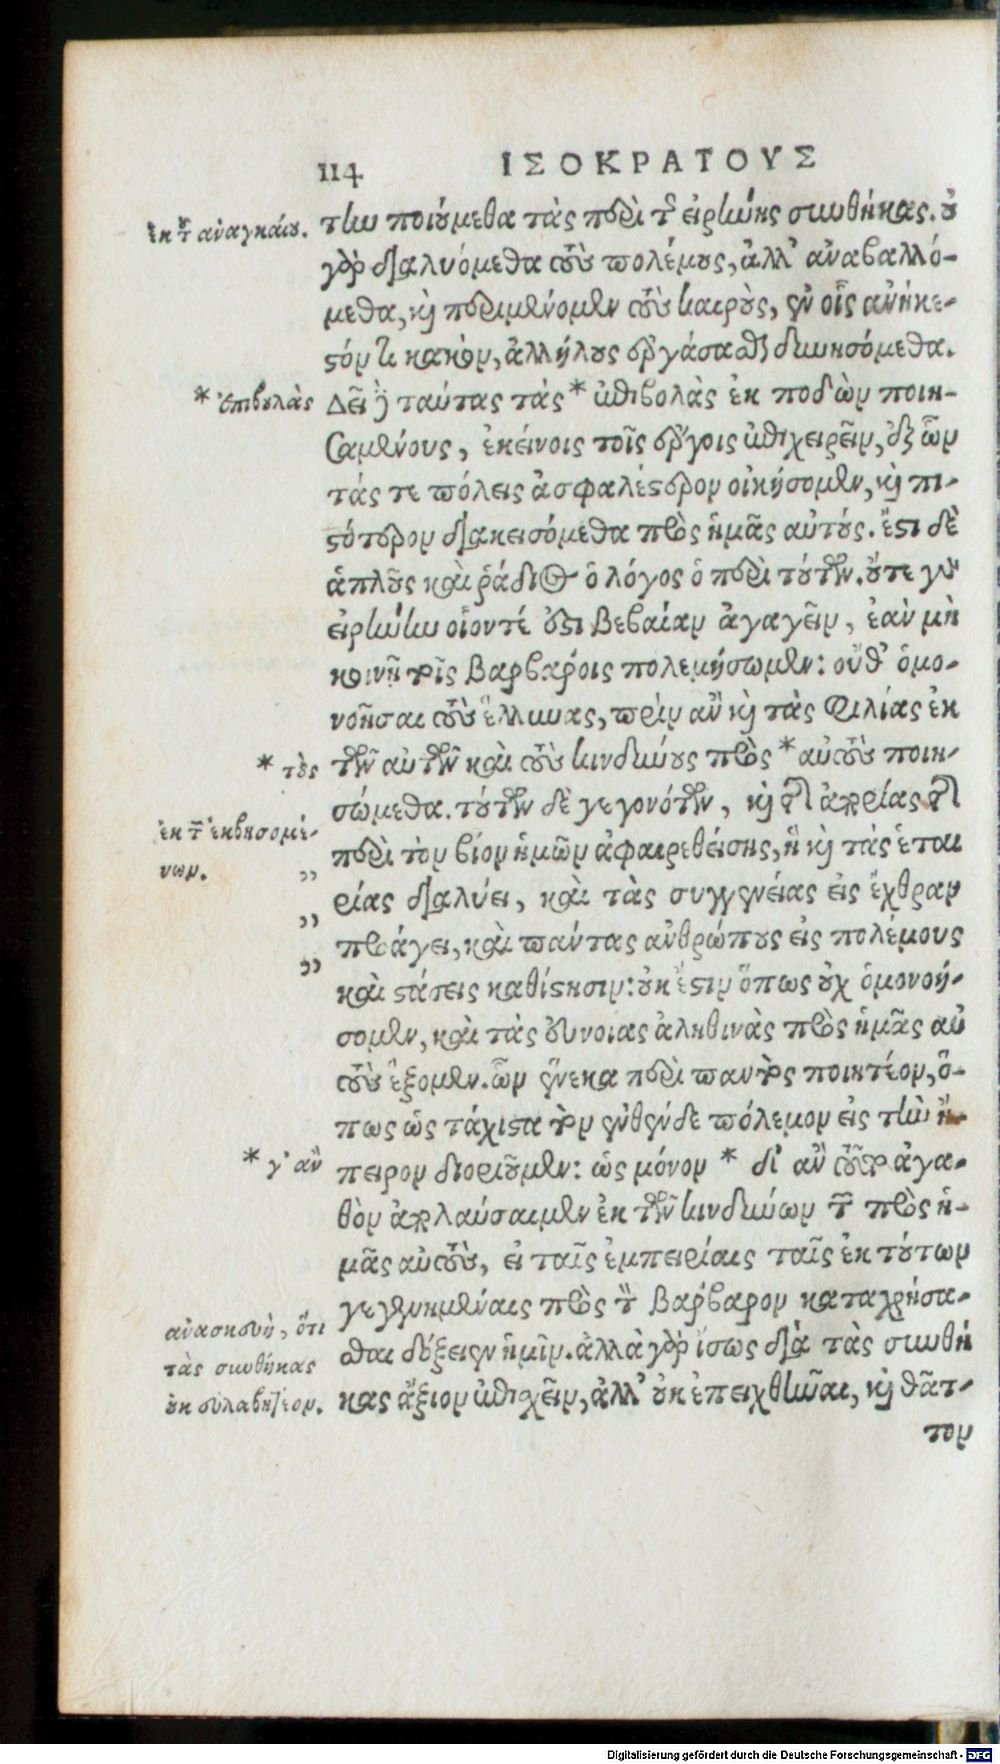 114 ΙΣΟΚΡΑΤΟΥΣ
ἐκ τοῦ ἀναγκαίου.
την ποιούμεθα τὰς περὶ τῆς εἰρήνης συνθήκας. οὐ
γὰρ διαλυόμεθα τοὺς πολέμους, ἀλλ' ἀναβαλλό-
μεθα, καὶ περιμένομεν τοὺς καιροὺς, ἐν οἷς ἀνήκε-
στόν τι κακὸν, ἀλλήλους ἐργάσασθαι δυνησόμεθα.
* ἐπιβουλὰς
Δεῖ δὲ ταύτας τὰς * ἐπιβολὰς ἐκ ποδὼν ποιη-
σαμένους, ἐκείνοις τοῖς ἔργοις ἐπιχειρεῖν, ἐξ ὧν
τάς τε πόλεις ἀσφαλέστερον οἰκήσομεν, καὶ πι-
στότερον διακεισόμεθα πρὸς ἡμᾶς αὐτούς. ἔστι δὲ
ἁπλοῦς καὶ ῥάδιος ὁ λόγος ὁ περὶ τούτων. οὔτε γὰρ
εἰρήνην οἷοντέ ἐστι βεβαίαν ἀγαγεῖν, ἐὰν μὴ
κοινῇ τοῖς βαρβάροις πολεμήσωμεν: οὔθ' ὁμο-
νοῆσαι τοὺς ἕλληνας, πρὶν ἂν καὶ τὰς φιλίας ἐκ
* τοὺς
τῶν αὐτῶν καὶ τοὺς κινδύνους πρὸς * αὐτοὺς ποιη-
σώμεθα. τούτων δὲ γεγονότων, καὶ τῆς ἀπορίας τῆς
ἐκ τῶν ἐκβησομέ-
νων.
περὶ τὸν βίον ἡμῶν ἀφαιρεθείσης, ἣ καὶ τὰς ἑται
,, ρίας διαλύει, καὶ τὰς συγγενείας εἰς ἔχθραν
,, προάγει, καὶ πάντας ἀνθρώπους εἰς πολέμους
,, καὶ στάσεις καθίστησιν: οὐκ ἔστιν ὅπως οὐχ ὁμονοή-
σομεν, καὶ τὰς εὐνοίας ἀληθινὰς πρὸς ἡμᾶς αὐ
τοὺς ἕξομεν. ὧν ἕνεκα περὶ παντὸς ποιητέον, ὅ-
πως ὡς τάχιστα τὸν ἐνθένδε πόλεμον εἰς τὴν ἤ-
* γ' ἂν
πειρον διοριοῦμεν: ὡς μόνον * δι' ἂν τοῦτο ἀγα-
θὸν ἀπολαύσαιμεν ἐκ τῶν κινδύνων τῶν πρὸς ἡ-
μᾶς αὐτοὺς, εἰ ταῖς ἐμπειρίαις ταῖς ἐκ τούτων
γεγενημέναις πρὸς τὸν βάρβαρον καταχρήσα-
ἀνασκευὴ, ὅτι
τὰς συνθήκας
οὐκ εὐλαβητέον.
σθαι δόξειεν ἡμῖν. ἀλλὰ γὰρ ἴσως διὰ τὰς συνθή
κας ἄξιον ἐπισχεῖν, ἀλλ' οὐκ ἐπειχθῆναι, καὶ θᾶτ-
τον
Digitalisierung gefördert durch die Deutsche Forschungsgemeinschaft - DFG